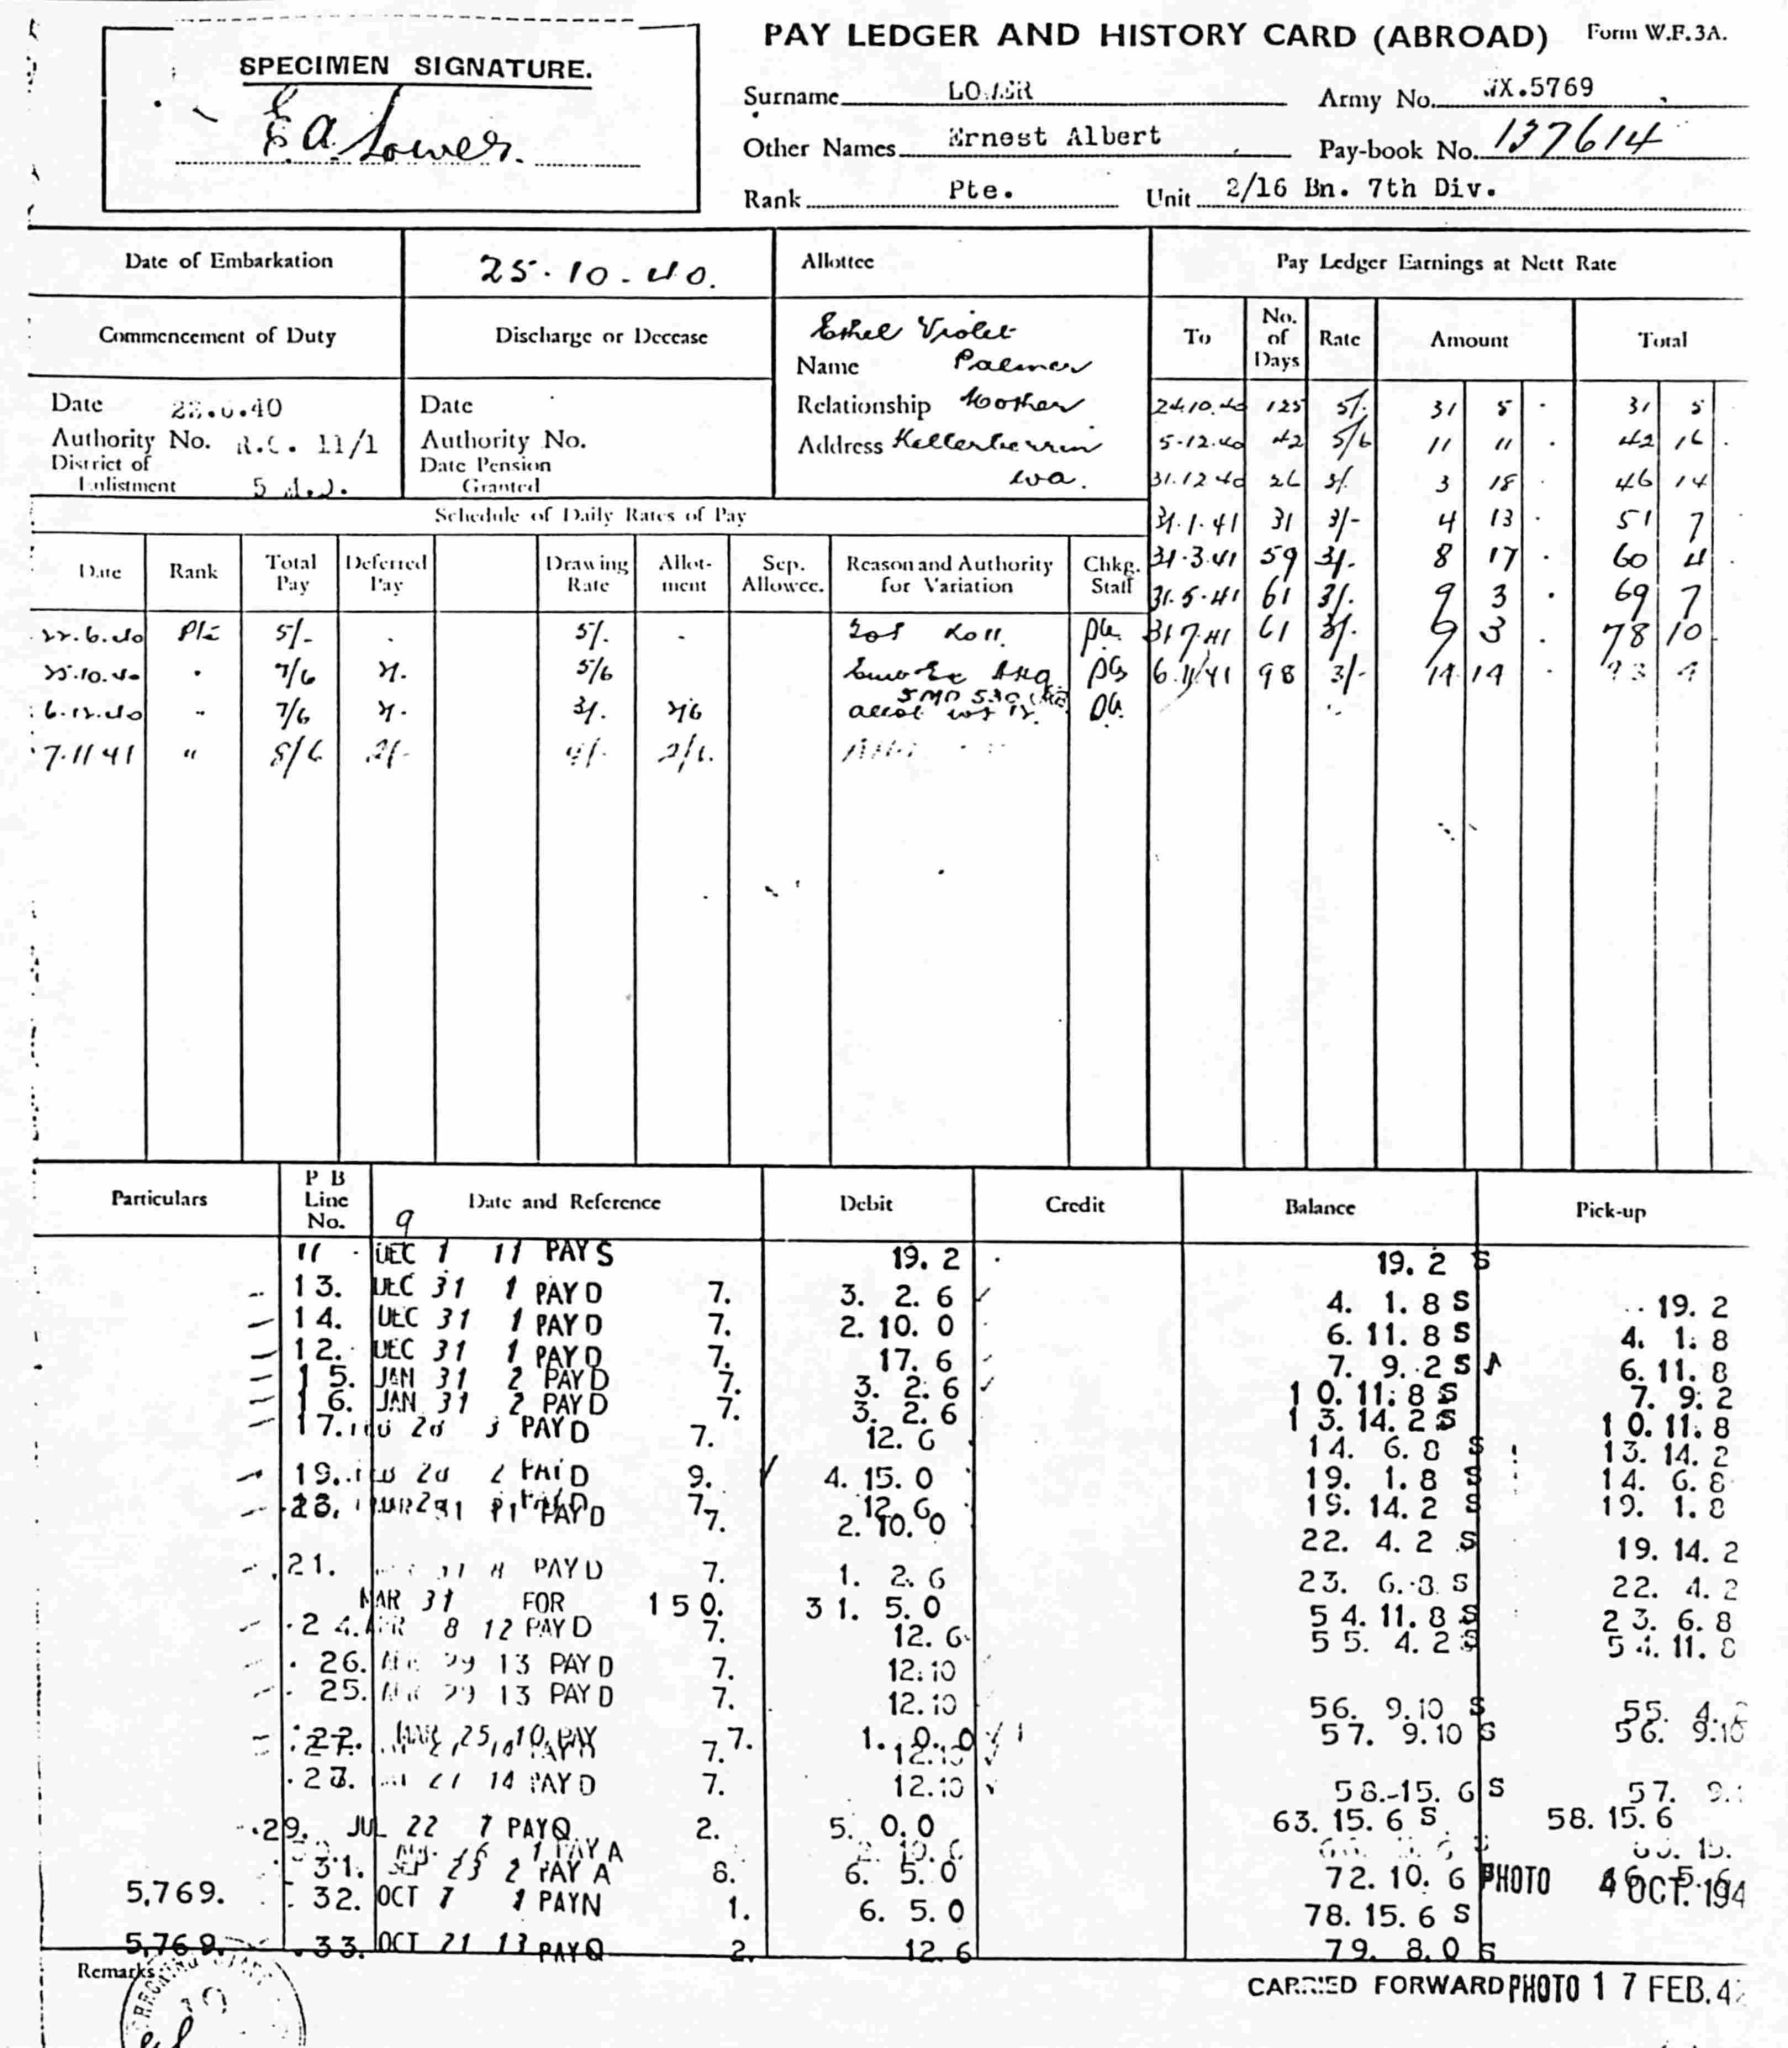 SPECIMEN SIGNATURE.
E. A. Lower.
PAY LEDGER AND HISTORY CARD (ABROAD) Form W.F.3A.
Surname LOWER Army No. WX.5769
Other Names Ernest Albert Pay-book No. 137614
Rank Pte. Unit 2/16 Bn. 7th Div.
Date of Embarkation 25.10.40.
Commencement of Duty Discharge or Decease
Date 22.6.40 Date
Authority No. R.C. 11/1 Authority No.
District of Enlistment 5 Date Pension Granted
Allottee
Ethel Violet
Name Palmer
Relationship Mother
Address Kellerberrin
wa.
Pay Ledger Earnings at Nett Rate
To No. of Days Rate Amount Total
24.10.40 125 5/. 31 5 . 31 5
5.12.40 42 5/6 11 11 . 42 16 .
31.12.40 26 3/. 3 18 . 46 14
31.1.41 31 3/- 4 13 . 51 7
31.3.41 59 3/. 8 17 . 60 4
31.5.41 61 3/. 9 3 . 69 7
31.7.41 61 3/. 9 3 . 78 10
6.11.41 98 3/- 14 14 - 93 4
Schedule of Daily Rates of Pay
Date Rank Total Pay Deferred Pay Drawing Rate Allotment Sep. Allowce. Reason and Authority for Variation Chkg. Staff
22.6.40 Pte 5/- . 5/. . Roll
25.10.40 " 7/6 2/. 5/6
6.12.40 " 7/6 2/. 3/. 2/6
7.11.41 " 8/6 2/- 4/- 2/6.
Particulars P B Line No. Date and Reference Debit Credit Balance Pick-up
9
11 DEC 1 11 PAY S 19. 2 19. 2 S
13. DEC 31 1 PAY D 7. 3. 2. 6 4. 1. 8 S 19. 2
14. DEC 31 1 PAY D 7. 2. 10. 0 6. 11. 8 S 4. 1. 8
12. DEC 31 1 PAY D 7. 17. 6 7. 9. 2 S 6. 11. 8
15. JAN 31 2 PAY D 7. 3. 2. 6 10. 11. 8 S 7. 9. 2
16. JAN 31 2 PAY D 7. 3. 2. 6 13. 14. 2 S 10. 11. 8
17. FEB 28 3 PAY D 7. 12. 6 14. 6. 8 S 13. 14. 2
19. FEB 28 2 PAY D 9. 4. 15. 0 19. 1. 8 S 14. 6. 8
PAY D 7. 12. 6 19. 14. 2 S 19. 1. 8
PAY D 7. 2. 10. 0 22. 4. 2 S 19. 14. 2
21. 31 8 PAY D 7. 1. 2. 6 23. 6. 8 S 22. 4. 2
MAR 31 FOR 150. 31. 5. 0 54. 11. 8 S 23. 6. 8
24. APR 8 12 PAY D 7. 12. 6 55. 4. 2 S 54. 11. 8
26. 29 13 PAY D 7. 12. 10
25. 29 13 PAY D 7. 12. 10 56. 9. 10 S 55. 4. 2
22. MAR 25 10 PAY 7. 1. 0. 0 57. 9. 10 S 56. 9. 10
27. 7. 12. 10
14 PAY D 7. 12. 10 58. 15. 6 S 57. 9.
29. JUL 22 7 PAY Q 2. 5. 0. 0 63. 15. 6 S 58. 15. 6
1 PAY A
31. SEP 23 2 PAY A 8. 6. 5. 0 72. 10. 6 PHOTO 4 OCT. 194
5,769. 32. OCT 7 1 PAY N 1. 6. 5. 0 78. 15. 6 S
5,769. 33. OCT 21 13 PAY Q 2. 12. 6 79. 8. 0 S
Remarks
CARRIED FORWARD PHOTO 17 FEB. 42